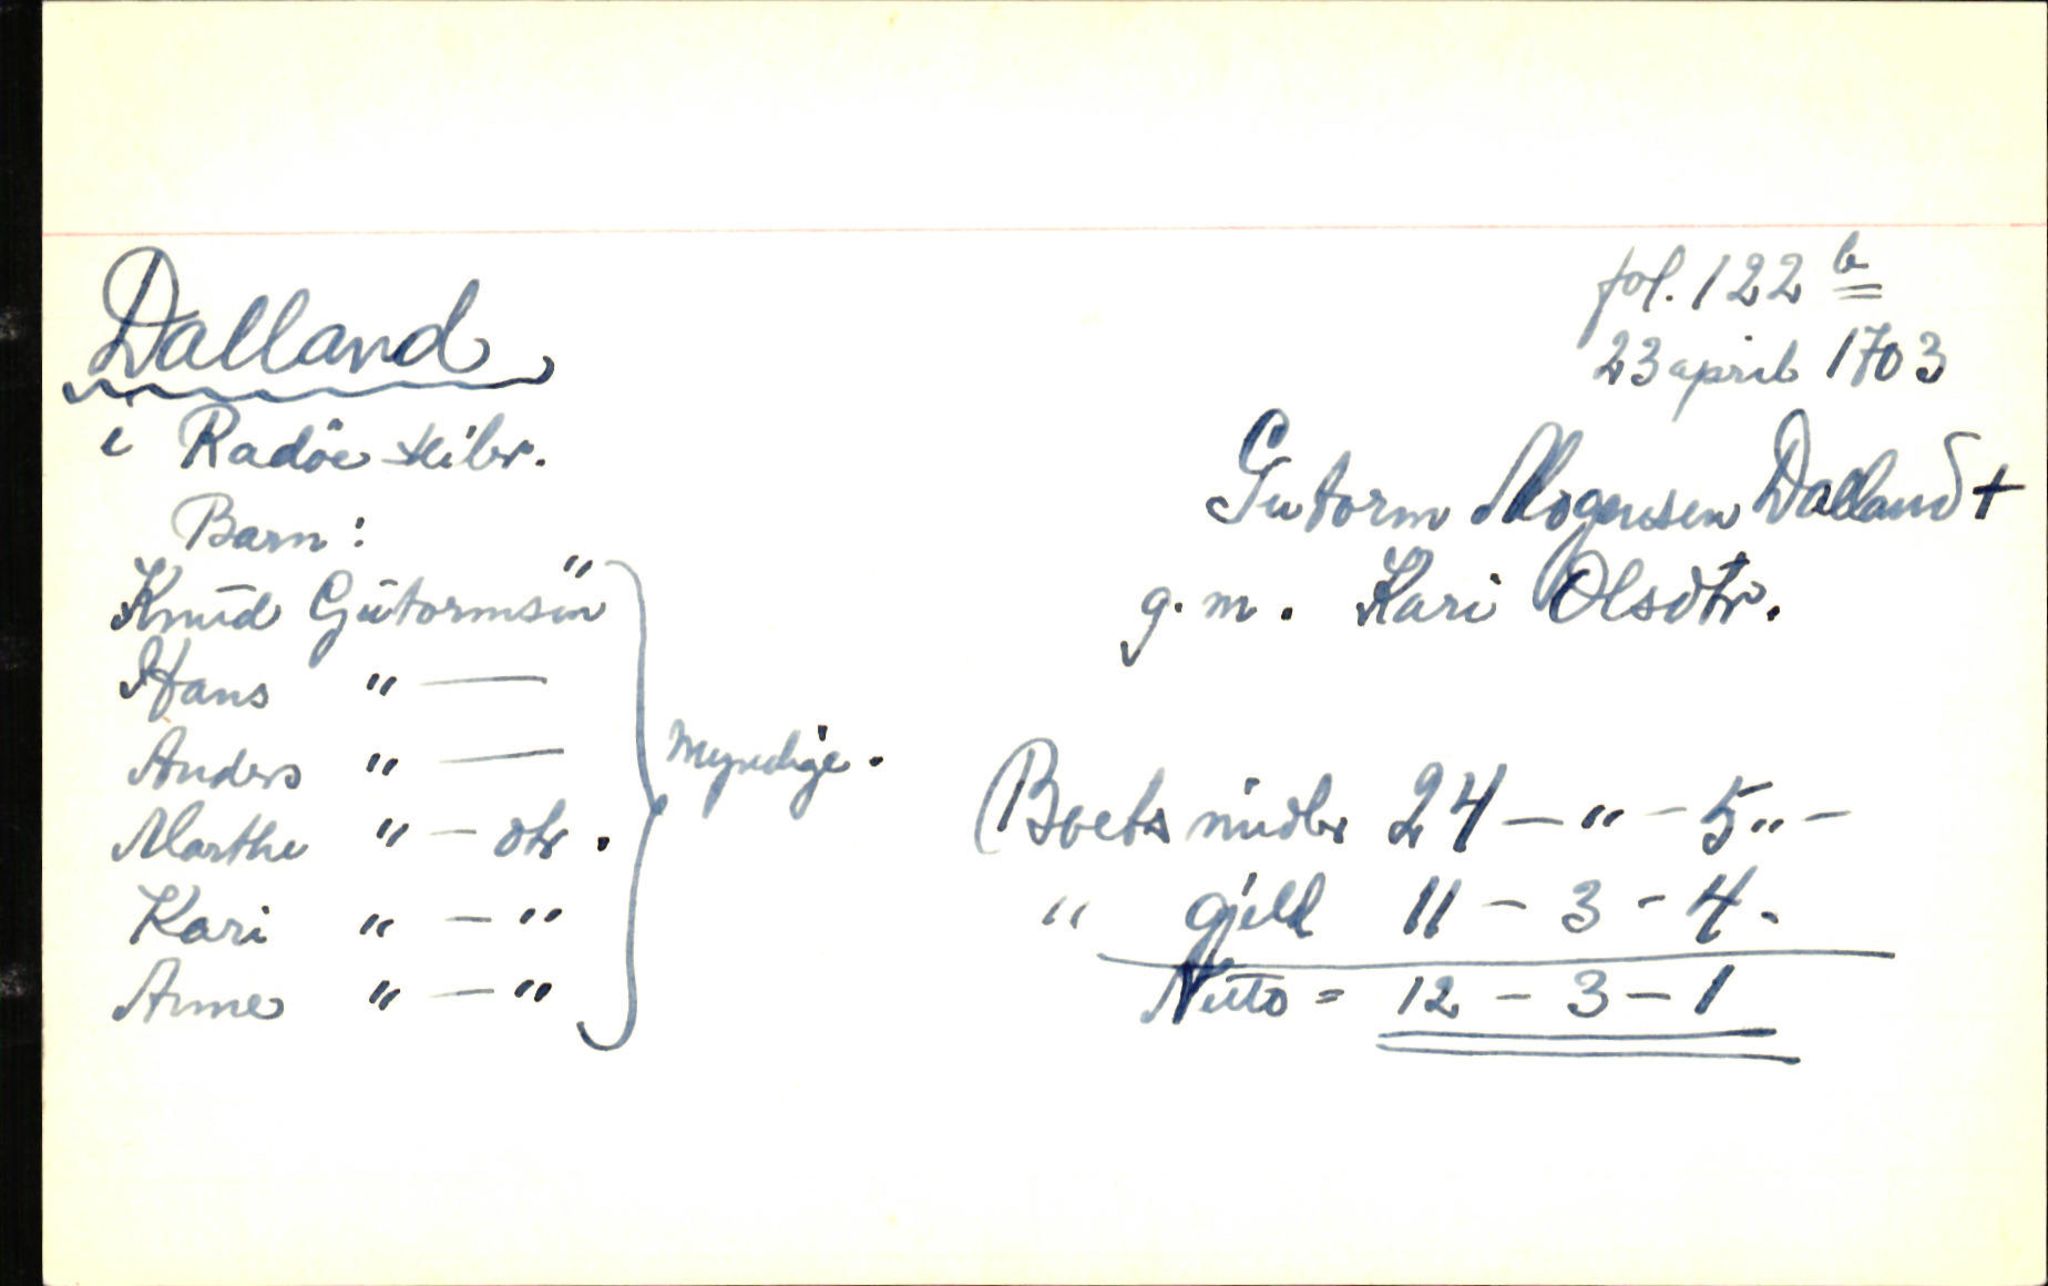 fol. 122 b
23 april 1703
Dalland
i Radöe skibr.
Gutorm Mogensen Dalland +
g. m. Kari Olsdtr.
Barn:
Knud Gutormsen "
Hans " —
Anders " —
Marthe " — dtr.
Kari " — "
Anne " — "
Myndige.
Boets midler 24 — " — 5 " —
" gjeld 11 — 3 — 4.
Netto = 12 — 3 — 1